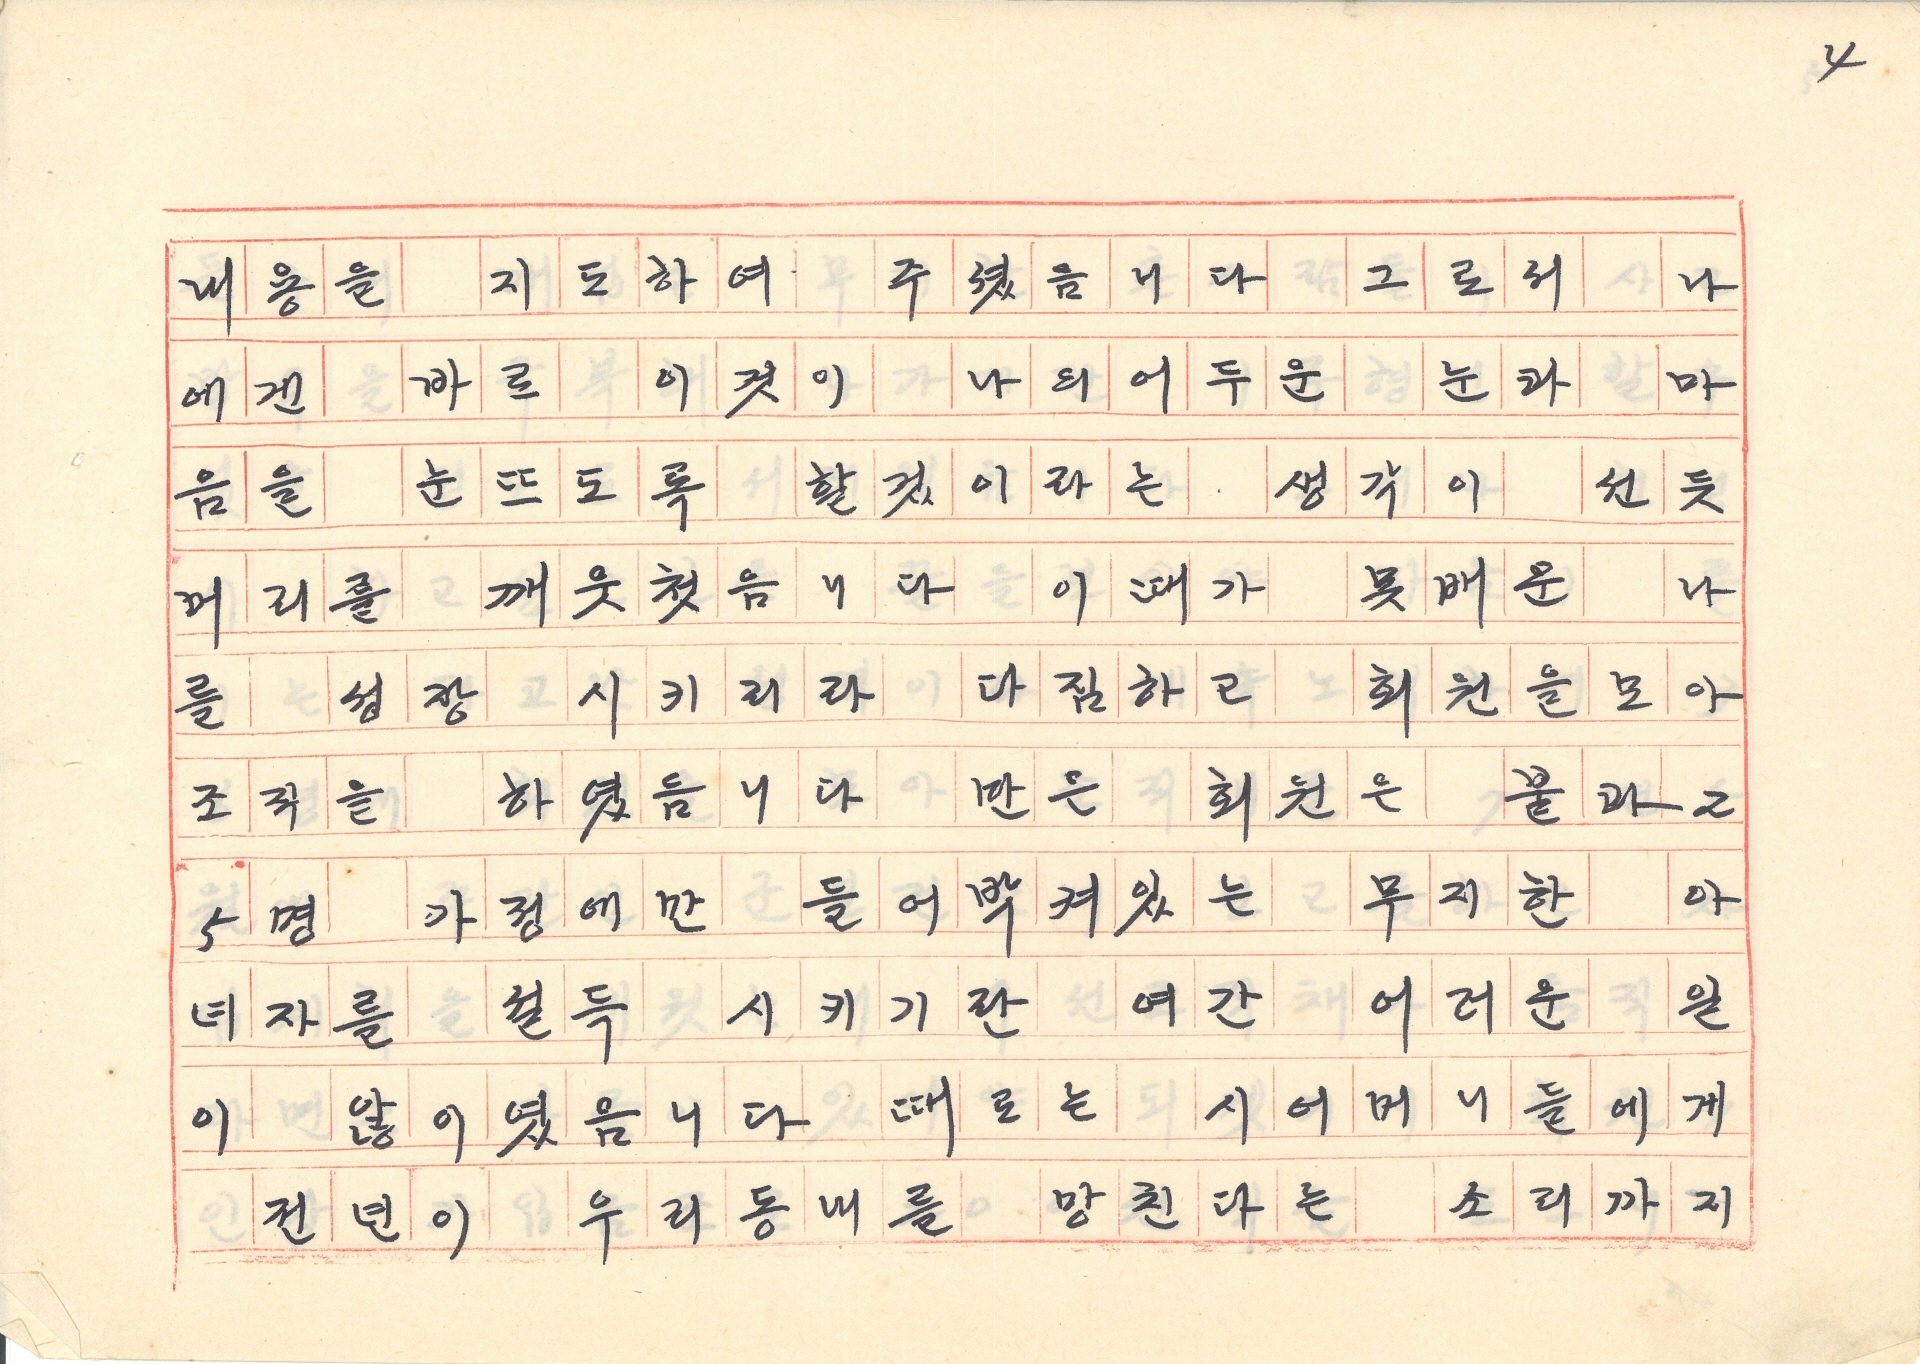 4
내용을 지도하여 주렸음니다 그로서 나
에겐 바로 이것이 나의 어두운 눈과 마
음을 눈뜨도록 할겄이라는 생각이 선듯
머리를 깨웃첫음니다 이때가 못배운 나
를 성장 시키리라 다짐하고 회원을 모아
조직을 하였듬니다 만은 회원은 불과 2
5명 가정에만 들어박켜있는 무지한 아
녀자를 설득 시키기란 여간 어려운 일
이 않이였음니다 때로는 시어머니들에게
전년이 우리동내를 망친다는 소리까지